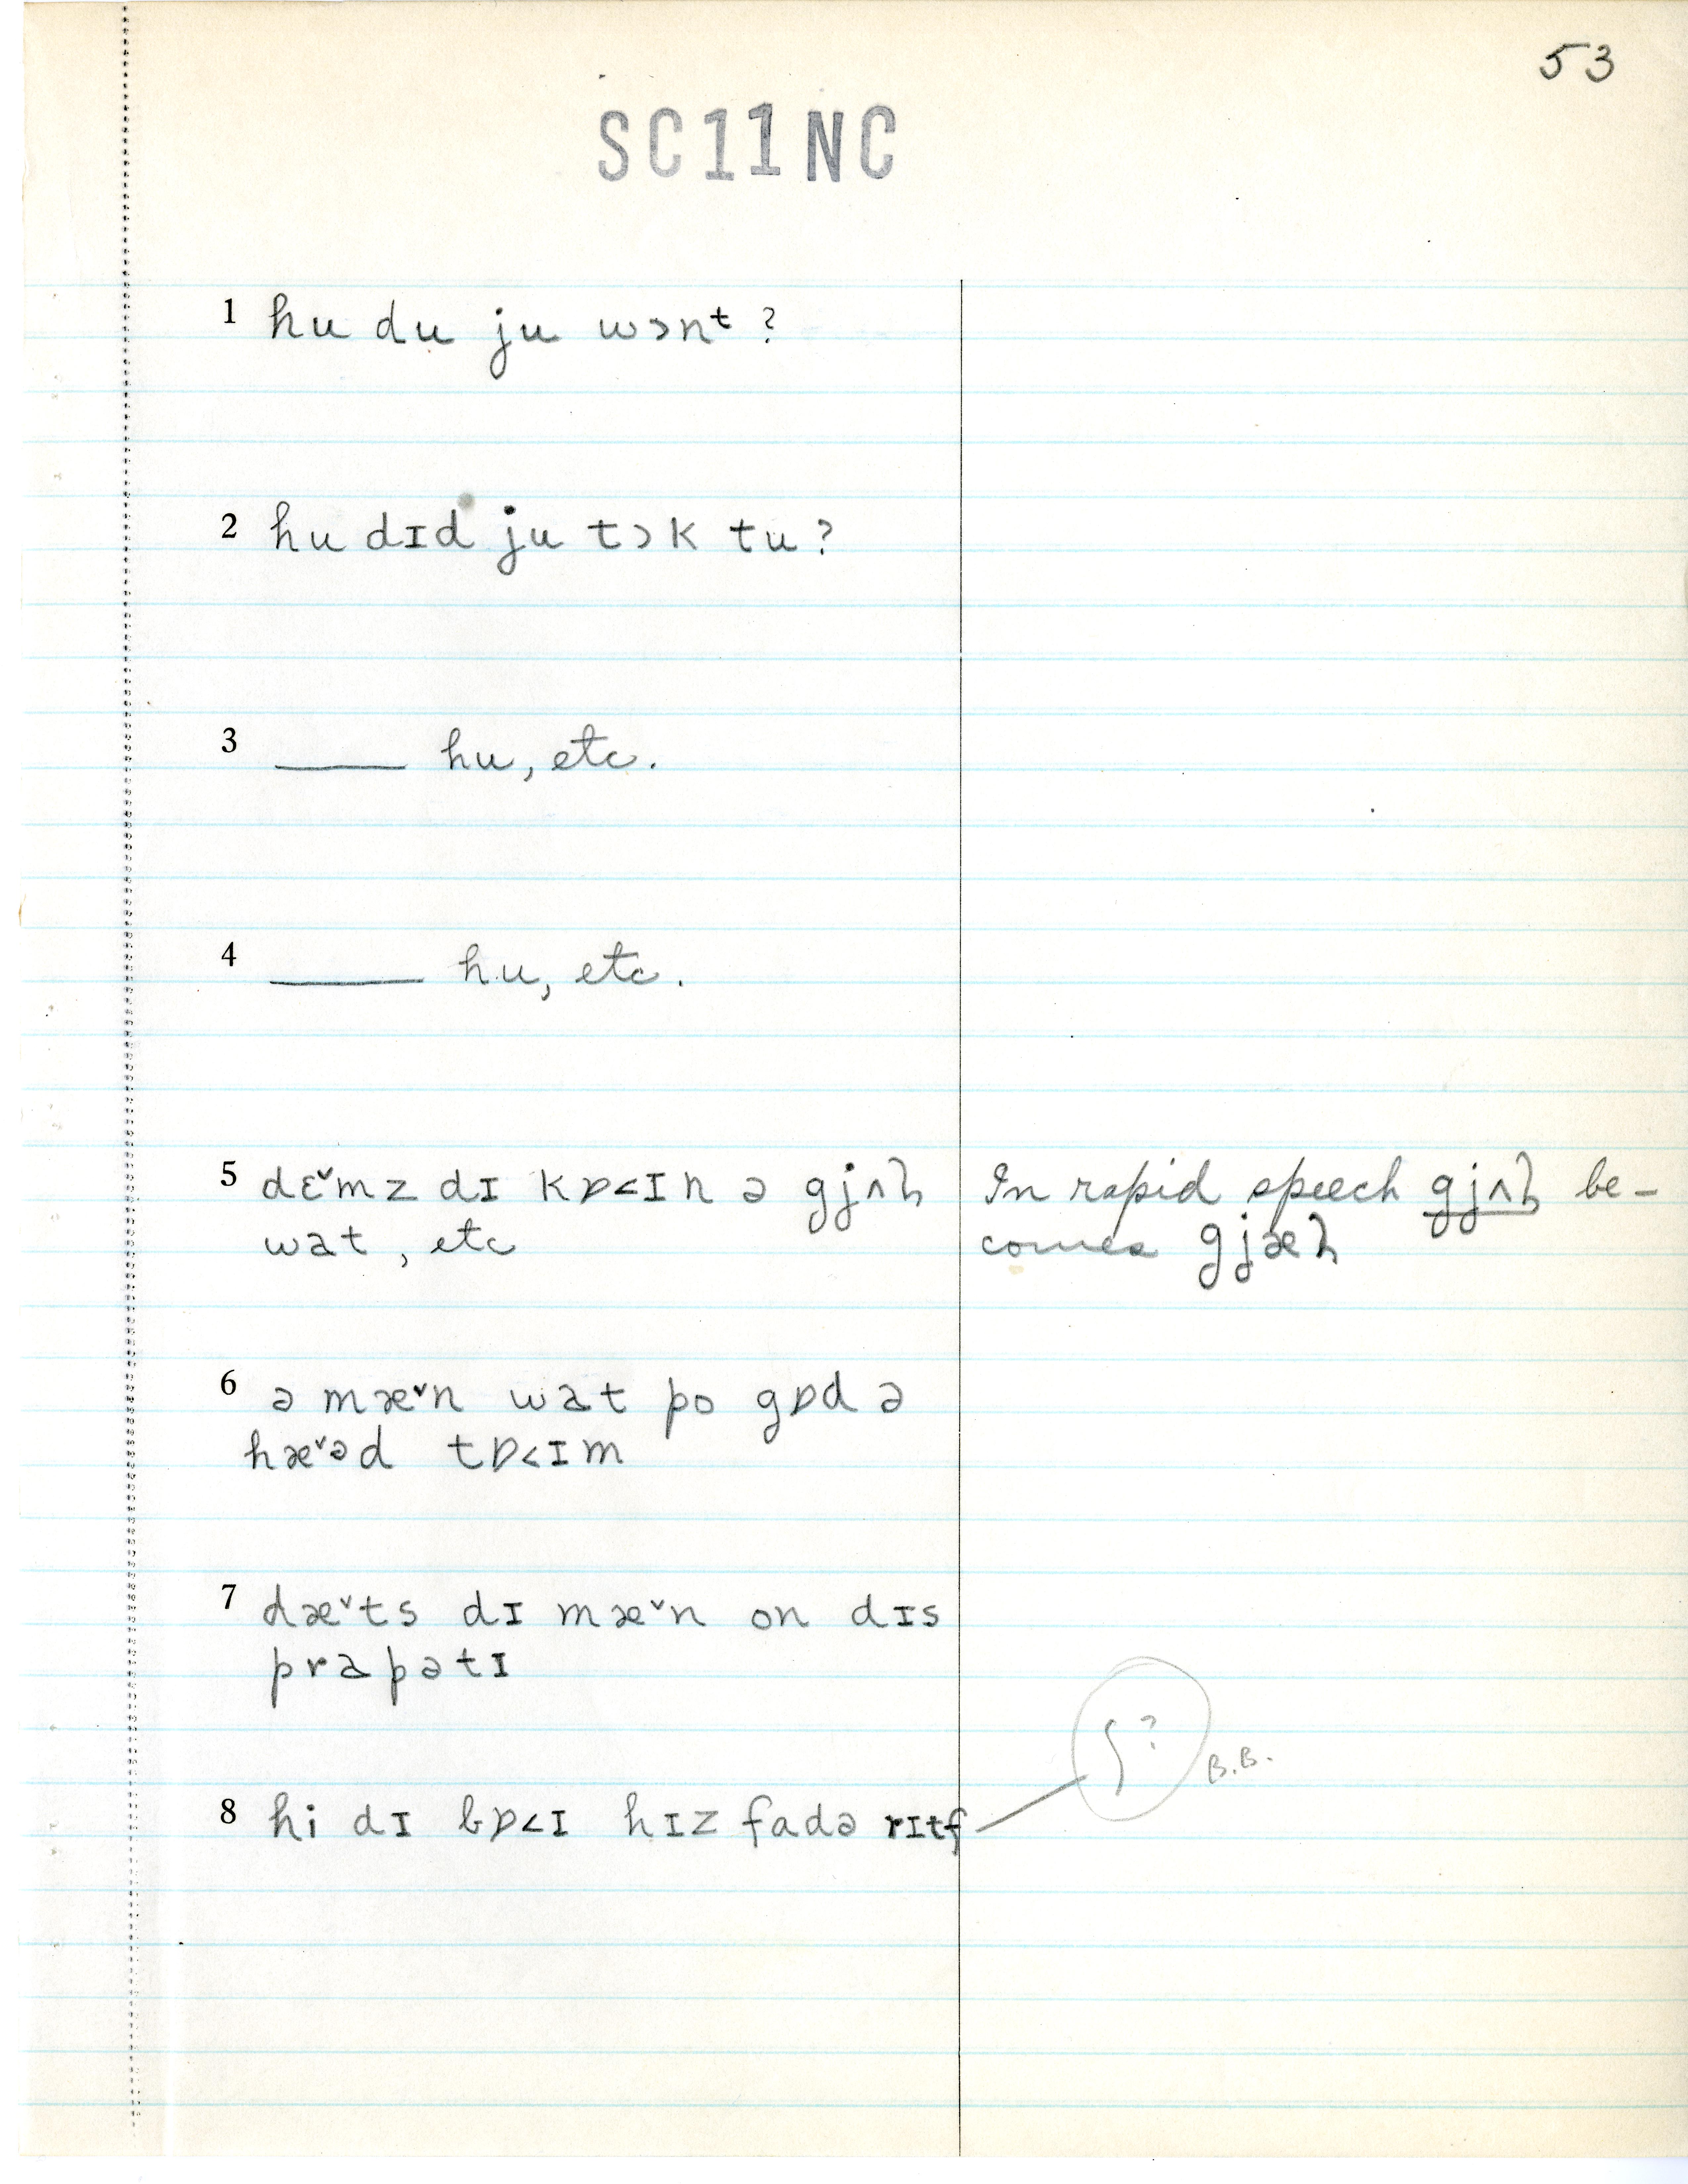 53
SC11NC
1 hu du ju wɔnᵗ ?
2 hu dɪd ju tɔk tu ?
3 ____ hu, etc.
4 ____ hu, etc.
5 dɛˇmz dɪ kɒ<ɪn ə gjʌɫ
wat , etc
In rapid speech gjʌɫ be-
comes gjæɫ
6 ə mæˇn wat po gɒd ə
hæˇəd tɒ<ɪm
7 dæˇts dɪ mæˇn on dɪs
prapətɪ
8 hi dɪ bɒ<ɪ hɪz fadə rɪtf
ʃ ?
B.B.